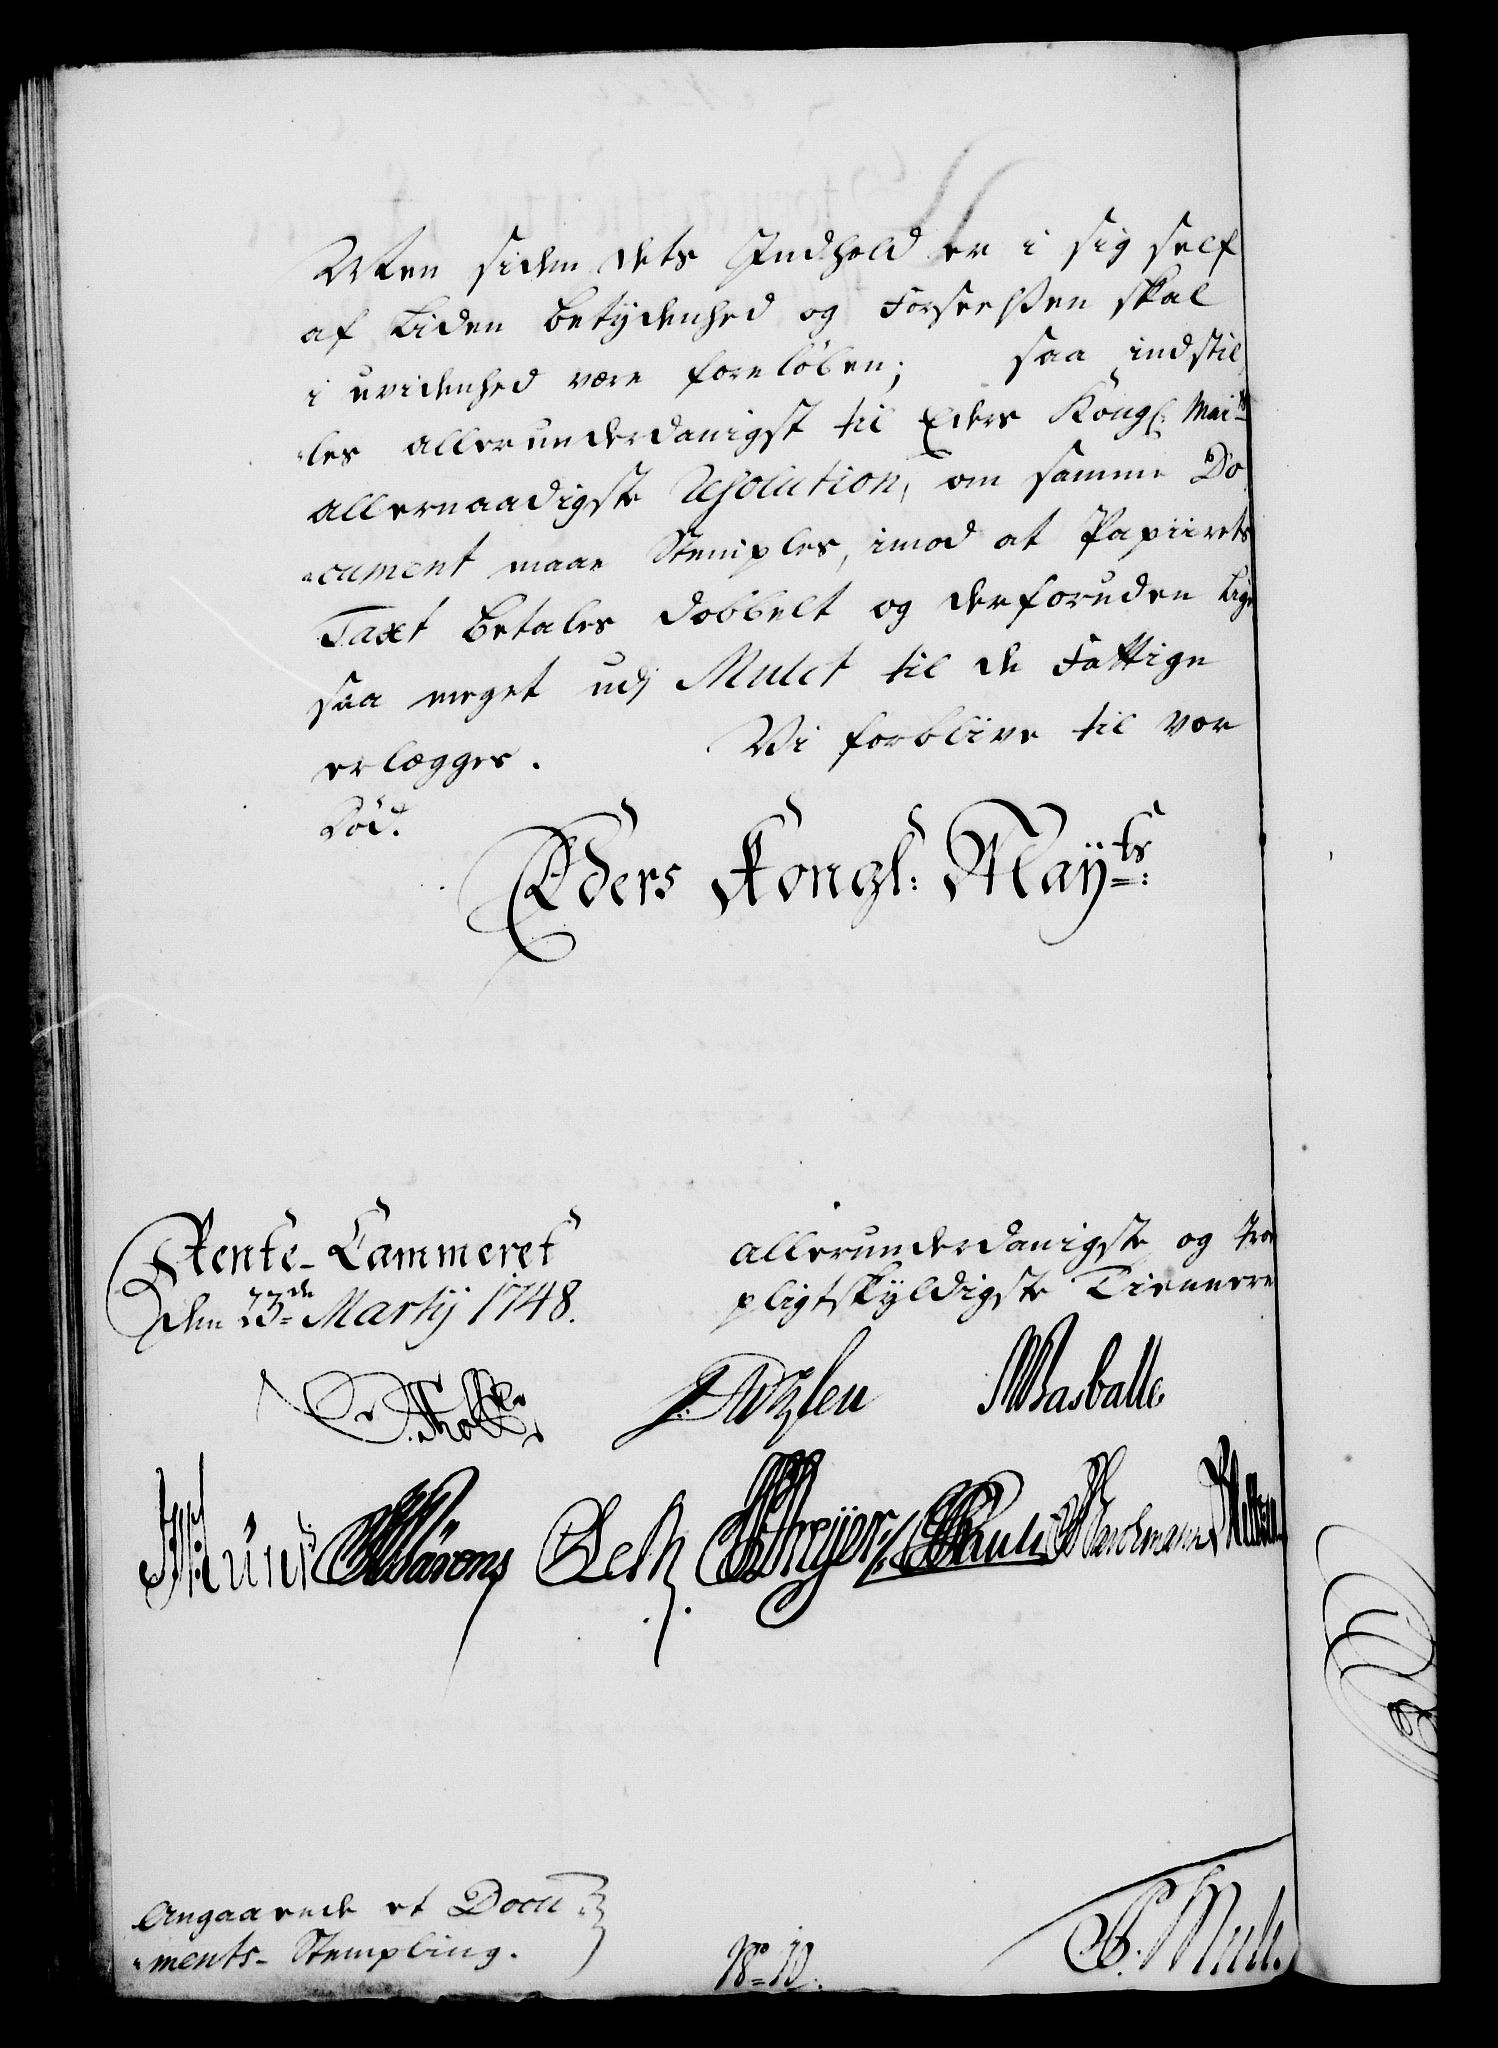 Men siden dets Indhold er i sig self
af liden betydenhed og Forseelsen skal
i uvidenhed være foreløben; saa indstil
les allerunderdanigst til Eders Kongl: Maits
allernaadigste Resolution, om samme Do
cument maae Stemples, imod at Papiirets
Taxt betales dobbelt og derforuden lige
saa meget udj Mulct til de Fattige
erlægges. Vi forblive til vor
Død.
Eders Kongl: Mayts:
Rente-Cammeret
den 23de Martij 1748.
allerunderdanigste og troe
pligtskyldigste Tiennere
Angaaende et Docu
ments-Stempling.
No 10.